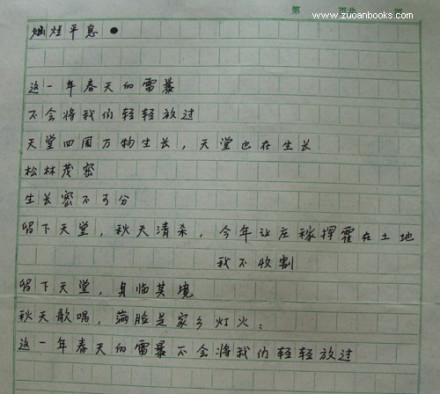 www.zuoanbooks.com
第
灿烂平息
这一年春天的雷暴
不会将我们轻轻放过
天堂四周万物生长，天堂也在生长
松林茂密
生长密不可分
留下天堂，秋天清杀，今年让庄稼挥霍在土地
我不收割
留下天堂，身临其境
秋天歌唱，满脸是家乡灯火：
这一年春天的雷暴不会将我们轻轻放过